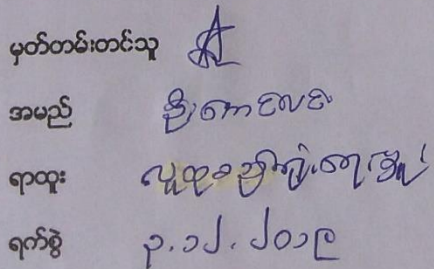 မှတ်တမ်းတင်သူ
အမည် ဦးကောလေး
ရာထူး လူထုစည်းရုံးရေးမှူး
ရက်စွဲ ၃.၁၂.၂၀၁၉